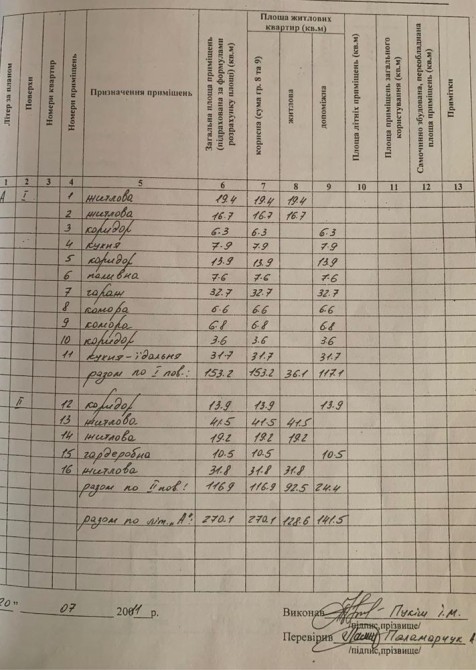 Літер за планом
Поверхи
Номери квартир
Номери приміщень
Призначення приміщень
Загальна площа приміщень (підрахована за формулами розрахунку площі) (кв.м)
Площа житлових квартир (кв.м)
корисна (сума гр. 8 та 9)
житлова
допоміжна
Площа літніх приміщень (кв.м)
Площа приміщень загального користування (кв.м)
Самочинно збудована, переобладнана площа приміщень (кв.м)
Примітки
1 2 3 4 5 6 7 8 9 10 11 12 13
А І 1 житлова 19.4 19.4 19.4
2 житлова 16.7 16.7 16.7
3 коридор 6.3 6.3 6.3
4 кухня 7.9 7.9 7.9
5 коридор 13.9 13.9 13.9
6 паливна 7.6 7.6 7.6
7 гараж 32.7 32.7 32.7
8 комора 6.6 6.6 6.6
9 комора 6.8 6.8 6.8
10 коридор 3.6 3.6 3.6
11 кухня-їдальня 31.7 31.7 31.7
разом по І пов.: 153.2 153.2 36.1 117.1
ІІ 12 коридор 13.9 13.9 13.9
13 житлова 41.5 41.5 41.5
14 житлова 19.2 19.2 19.2
15 гардеробна 10.5 10.5 10.5
16 житлова 31.8 31.8 31.8
разом по ІІ пов.: 116.9 116.9 92.5 24.4
разом по літ. „А": 270.1 270.1 128.6 141.5
20" 07 2011 р.
Виконав Пукіш І.М.
/підпис,прізвище/
Перевірив Паламарчук
/підпис,прізвище/